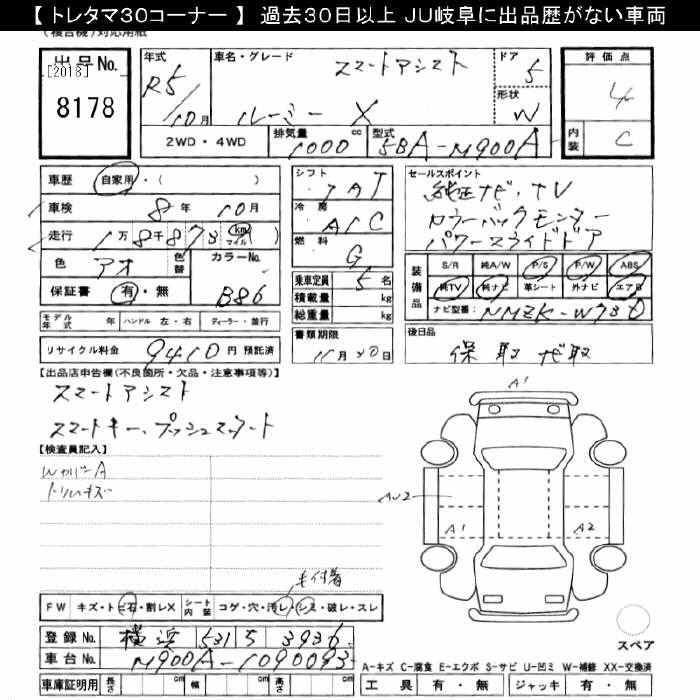 【 トレタマ30コーナー 】 過去30日以上 JU岐阜に出品歴がない車両
出品No.
[2018]
8178
年式
R5/10月
車名・グレード
スマートアシスト
ルーミー X
ドア
5
形状
W
評価点
4
内装
C
2WD・4WD
排気量
1000 cc
型式
5BA-M900A
車歴
自家用・( )
車検
8年10月
走行
1万8千873 km マイル
色
アオ
色替
カラーNo.
B86
保証書
有・無
シフト
IAT
冷房
AIC
燃料
G
乗車定員
5名
積載量
kg
総重量
kg
セールスポイント
純正ナビ・TV
カラーバックモニター
パワースライドドア
装備品
S/R 純A/W P/S P/W ABS
純TV 純ナビ 革シート 外ナビ エアB
ナビ型番: NMZK-W73D
モデル年式 年 ハンドル 左・右 ディーラー・並行
リサイクル料金 9410円 預託済
書類期限
11月30日
後日品
保 取 ナビ取
【出品店申告欄(不良箇所・欠品・注意事項等)】
スマートアシスト
スマートキー、プッシュスタート
【検査員記入】
WカバーA
トリムキズ
A1
AU2
A1
A2
毛付着
FW キズ・トビ石・割レX シート内装 コゲ・穴・汚レ・シミ・破レ・スレ
登録No. 横浜 531 ら 3936
車台No. M900A-1090093
スペア
A-キズ C-腐食 E-エクボ S-サビ U-凹ミ W-補修 XX-交換済
車庫証明用 長さ cm 幅 cm 高さ cm
工具 有・無 ジャッキ 有・無